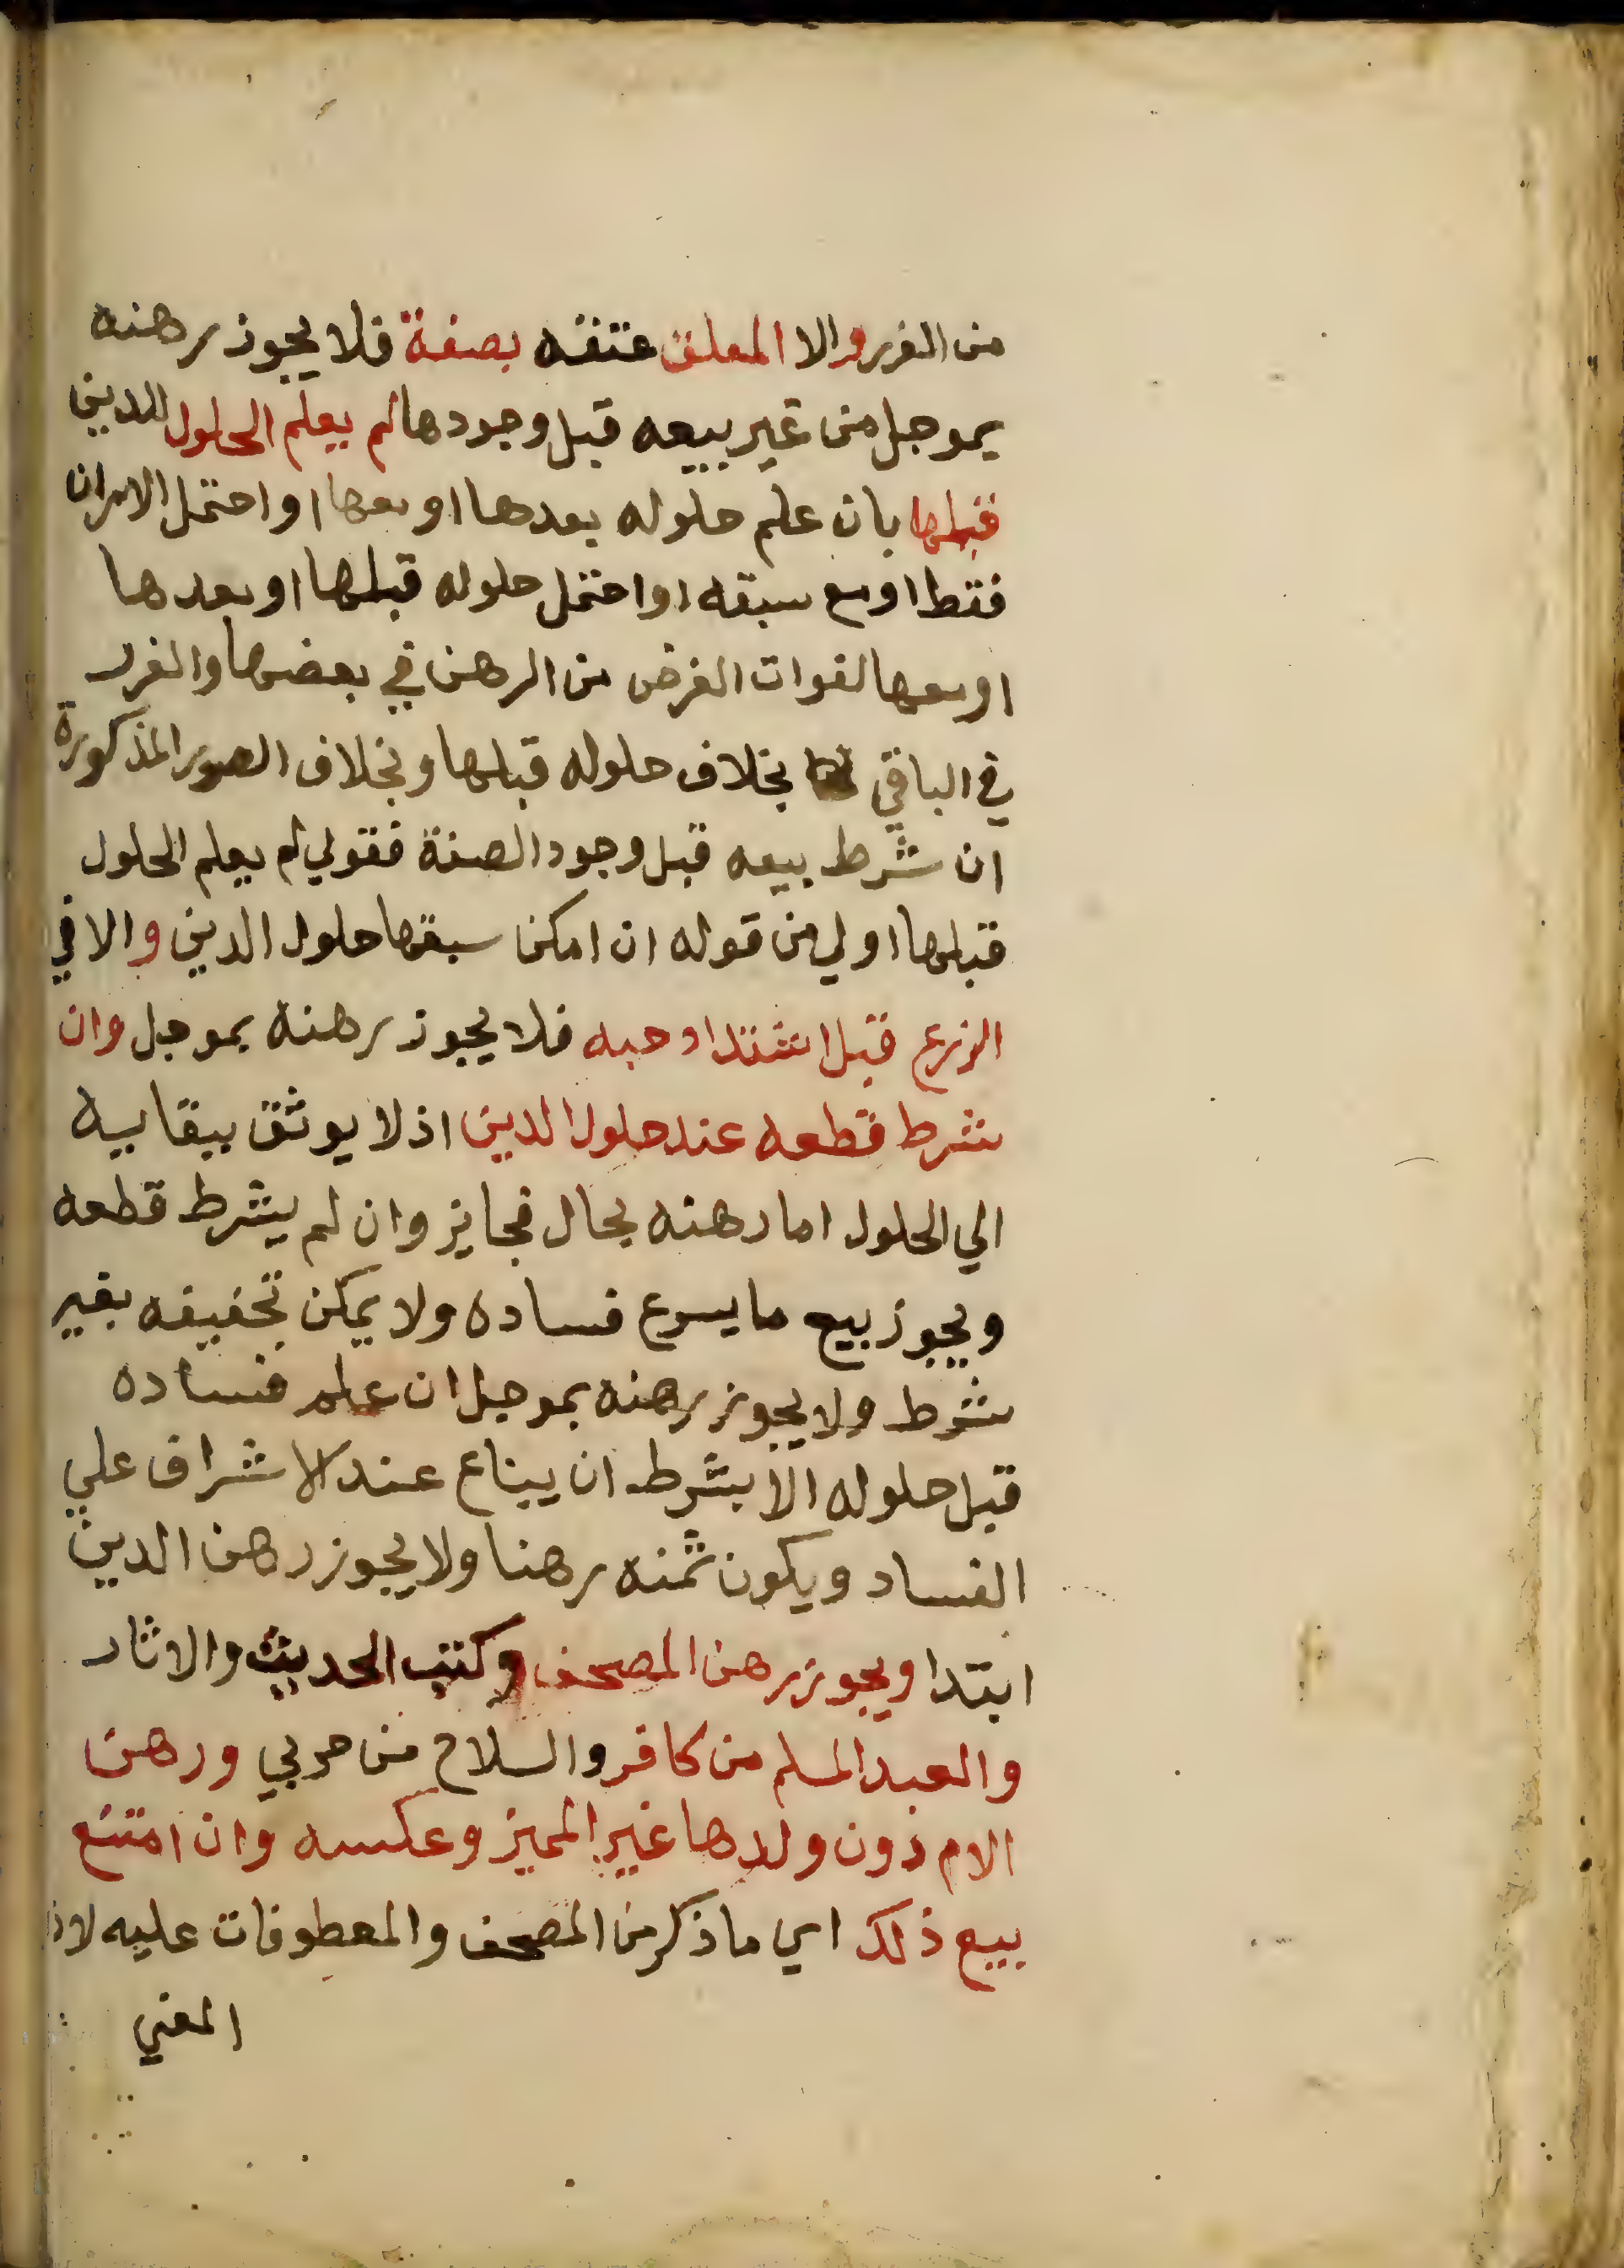 من الغرر والا المعلق عتقه بصفة فلا يجوز رهنه
بموجل من غير بيعه قبل وجودها لم يعلم الحلول للدين
قبلها بان علم حلوله بعدها او معها او احتمل الامران
فقط او مع سبقه او احتمل حلوله قبلها او بعدها
او معها لفوات الغرض من الرهن في بعضها والغرر
في الباقي بخلاف حلوله قبلها وبخلاف الصور المذكورة
ان شرط بيعه قبل وجود الصفة فقولي لم يعلم الحلول
قبلها اولي من قوله ان امكن سبقها حلول الدين والا في
الزرع قبل اشتداد حبه فلا يجوز رهنه بموجل وان
شرط قطعه عند حلول الدين اذ لا يوثق ببقايه
الي الحلول اما رهنه بحال فجايز وان لم يشرط قطعه
ويجوز بيع ما يسرع فساده ولا يمكن تجفيفه بغير
شرط ولا يجوز رهنه بموجل ان علم فساده
قبل حلوله الا بشرط ان يباع عند الاشراف علي
الفساد ويكون ثمنه رهنا ولا يجوز رهن الدين
ابتدا ويجوز رهن المصحف وكتب الحديث والاثار
والعبد المسلم من كافر والسلاح من حربي ورهن
الام دون ولدها غير المميز وعكسه وان امتنع
بيع ذلك اي ما ذكر من المصحف والمعطوفات عليه لان
المعني